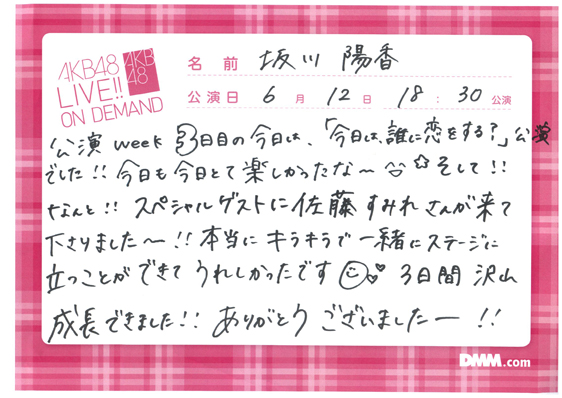 AKB48
LIVE!!
ON DEMAND
AKB
48
名 前 坂川 陽香
公演日 6 月 12 日 18 : 30 公演
公演week 3日目の今日は、「今日は、誰に恋をする?」公演
でした!! 今日も今日とて楽しかったな〜 ☺ ☆ そして!!
なんと!! スペシャルゲストに佐藤すみれさんが来て
下さりました〜!! 本当にキラキラで一緒にステージに
立つことができてうれしかったです ☺ 3日間 沢山
成長できました!! ありがとうございましたー !!
DMM.com